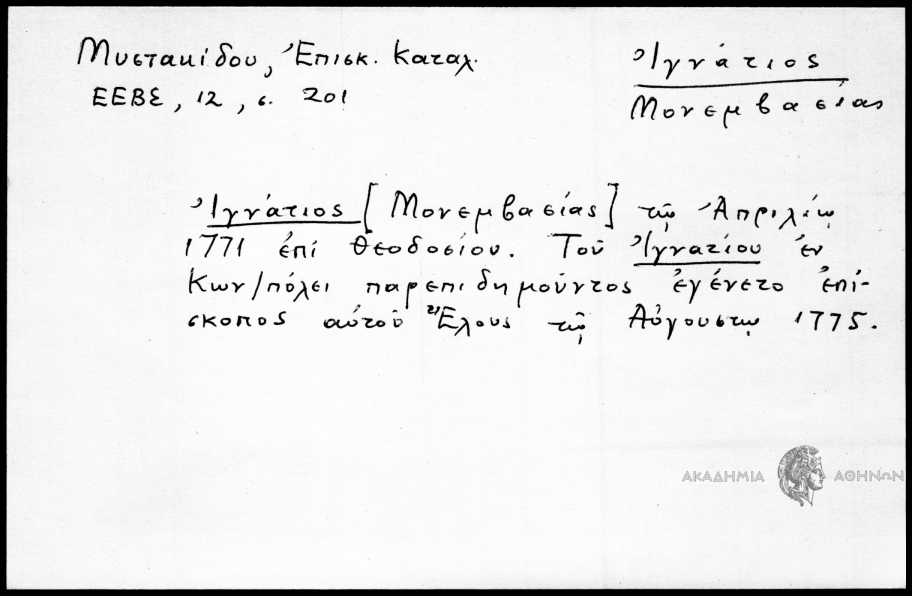 Μυστακίδου, Ἐπισκ. Καταλ.
ΕΕΒΣ, 12, σ. 201
Ἰγνάτιος
Μονεμβασίας
Ἰγνάτιος [Μονεμβασίας] τῷ Ἀπριλίῳ
1771 ἐπί Θεοδοσίου. Τοῦ Ἰγνατίου ἐν
Κων/πόλει παρεπιδημοῦντος ἐγένετο ἐπί-
σκοπος αὐτοῦ Ἕλους τῷ Αὐγούστῳ 1775.
ΑΚΑΔΗΜΙΑ ΑΘΗΝΩΝ